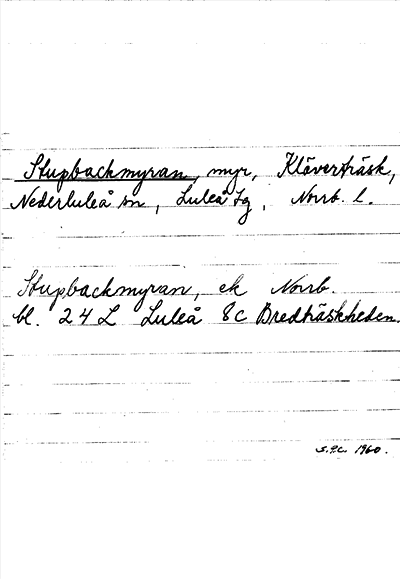 Stupbackmyran, myr, Kläverträsk,
Nederluleå sn, Luleå tg, Norrb. l.
Stupbackmyran, ek Norrb.
bl. 24 L Luleå 8c Bredträskheden.
1960.